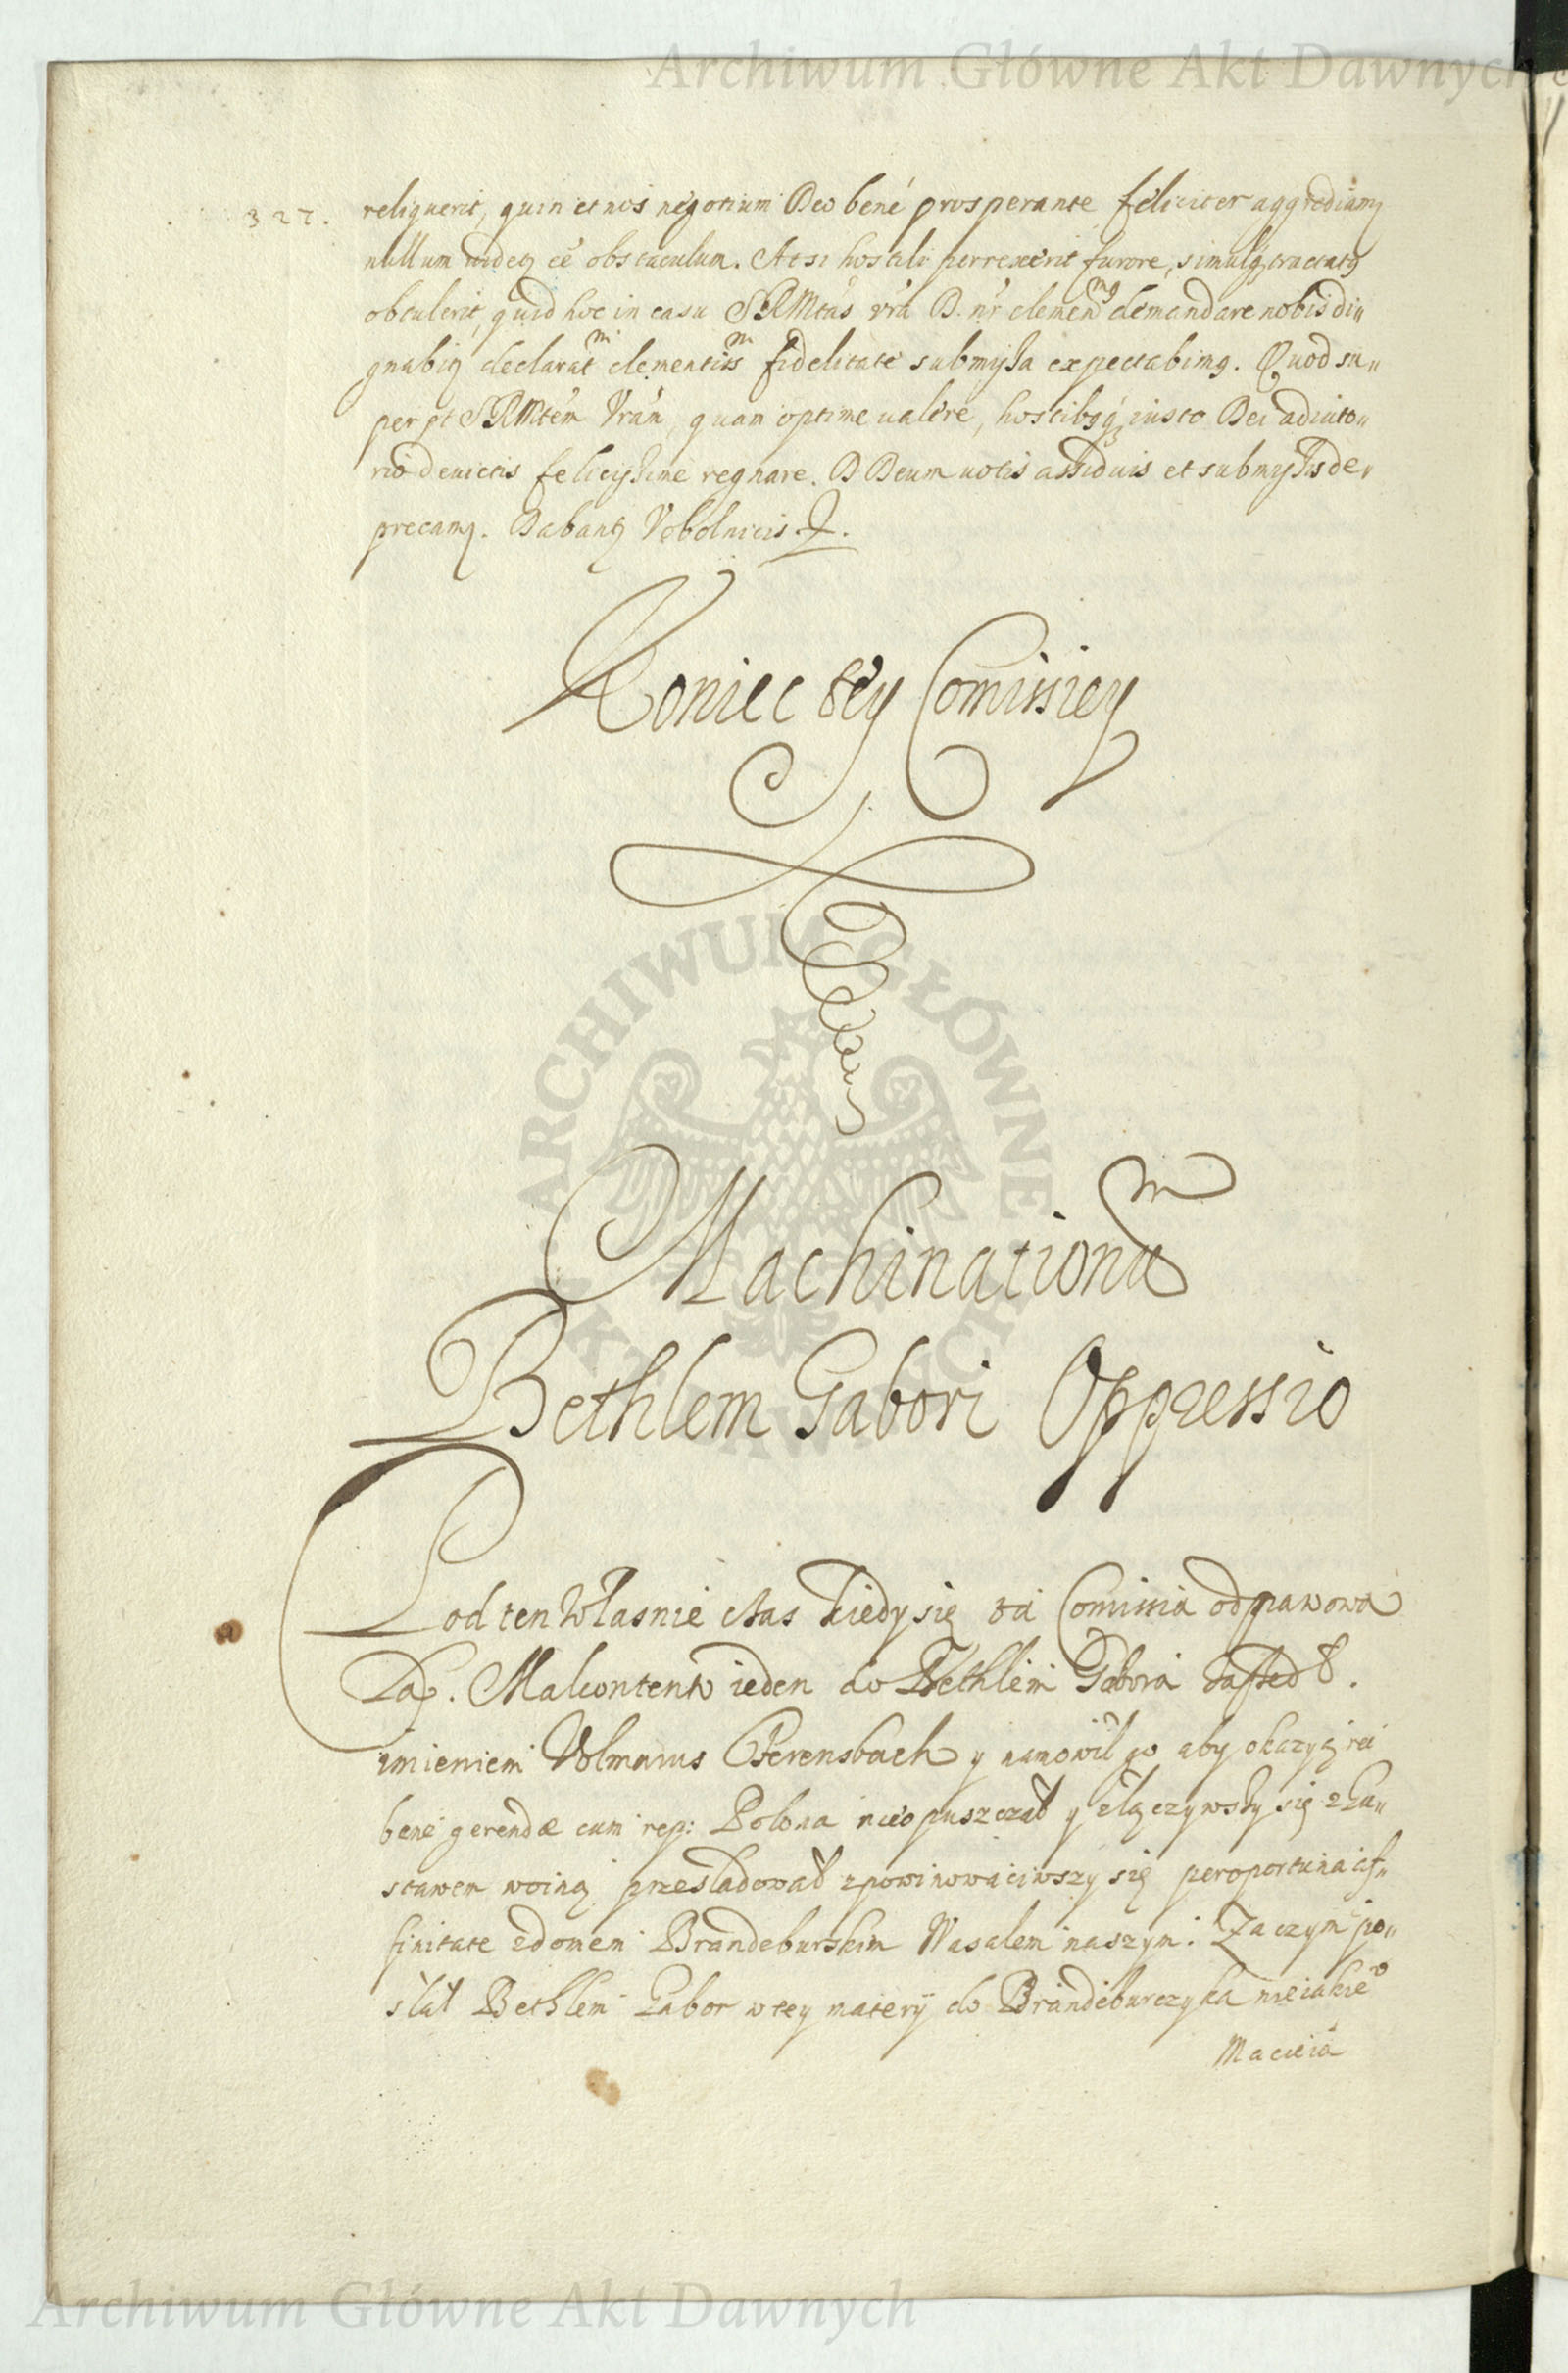 Archiwum Główne Akt Dawnych
327. reliquerit, quin et nos negotium Deo bené prosperante feliciter aggrediamꝫ
nullum videtꝫ eē obstaculum. At si hostili perrexerit furore, simulqꝫ tractatꝫ
obtulerit, quid hoc in casu SRMtas vrā D. nr̄ clemenmꝯ demandare nobis di„
gnabitꝫ declaratm clementissm fidelitate submyssa expectabimꝯ. Quod su„
per pt SRMtem Vrām, quam optime ualere, hostibꝯqꝫ iusto Dei adiuto„
rio devictis felicyssime regnare. D Deum votis assiduis et submyssis de„
precamꝫ. Dabantꝫ Vobolnicis
Koniec tey Comissiey
ARCHIWUM GŁÓWNE
AKT DAWNYCH
Machinationum
Bethlem Gabori Oppressio
Pod ten własnie czas kiedy się ta Comissia odprawowa
ła. Malcontentow ieden do Bethlem Gabora zaszedł.
imieniem Volmarus Ferensbach y namowił go aby okazyą rei
bene gerendæ cum rep: Polona nieopuszczał y złączywszy się z Gu„
stawem woiną przesladował zpowinowaciwszy się peroportuna af„
finitate zdomem Brandeburskim Wasalem naszym. Zaczym po„
słał Bethlem Gabor wtey materÿ do Brandeburczyka nieiakieo
Macieia
Archiwum Główne Akt Dawnych